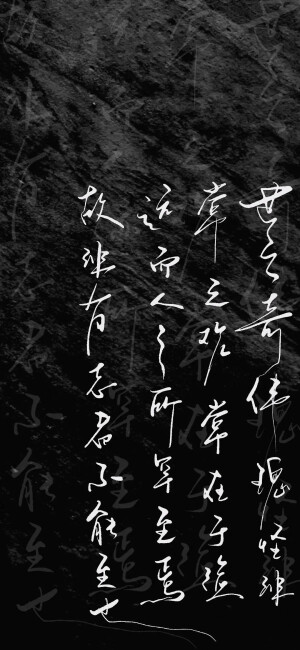 世之奇伟瑰怪非
常之观常在于险
远而人之所罕至焉
故非有志者不能至也